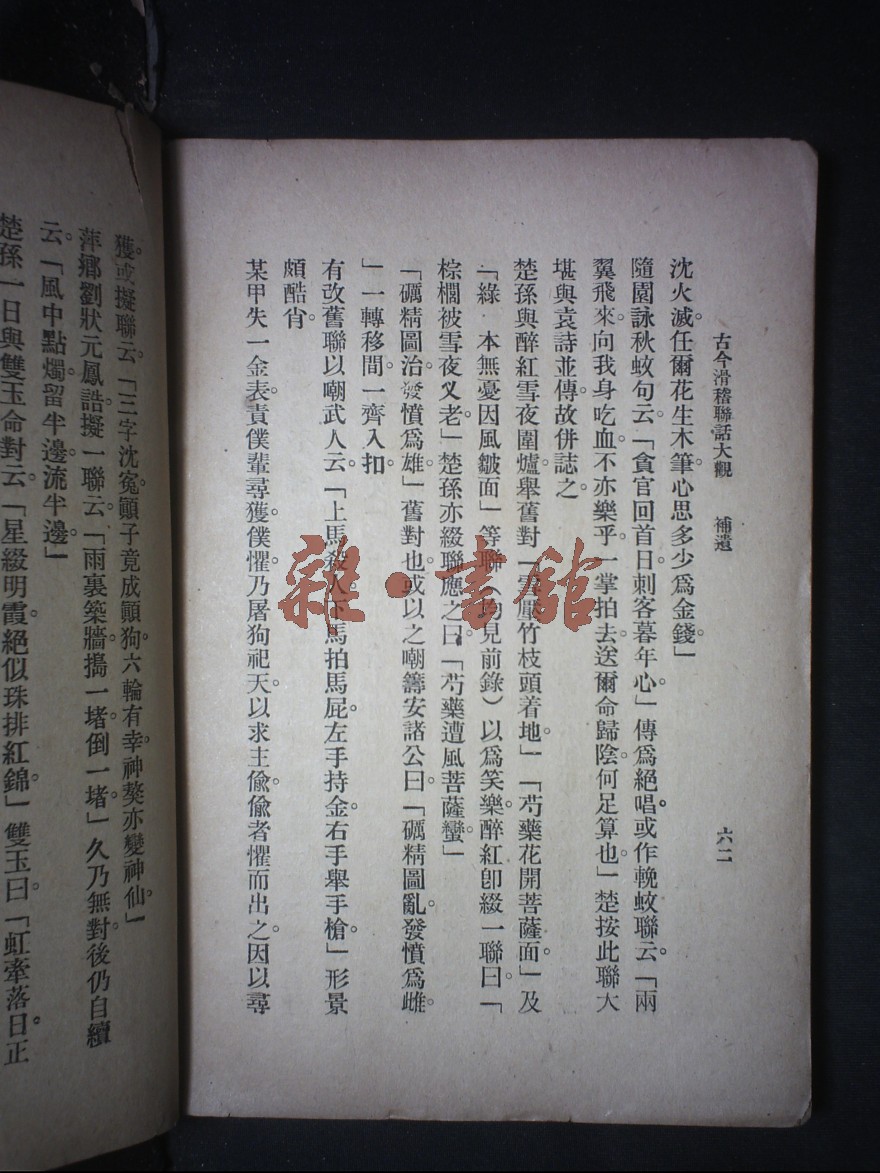 古今滑稽聯話大觀　補遺　六二
沈火滅。任爾花生木筆心思多少爲金錢」
隨園詠秋蚊句云。「貪官回首日。刺客暮年心」傳爲絕唱。或作輓蚊聯云。「兩
翼飛來。向我身吃血。不亦樂乎。一掌拍去。送爾命歸陰。何足算也」楚按此聯大
堪與袁詩並傳。故併誌之。
楚孫與醉紅雪夜圍爐。舉舊對「雪壓竹枝頭着地」「芍藥花開菩薩面」及
「綠　本無憂因風皺面」等聯（均見前錄）以爲笑樂。醉紅卽綴一聯曰。「
棕櫚被雪夜叉老」楚孫亦綴聯應之曰。「芍藥遭風菩薩蠻」
「礪精圖治。發憤爲雄」舊對也。或以之嘲籌安諸公曰。「礪精圖亂。發憤爲雌。
」一轉移間。一齊入扣。
有改舊聯以嘲武人云。「上馬殺人。下馬拍馬屁。左手持金。右手舉手槍。」形景
頗酷肖。
某甲失一金表。責僕輩尋獲。僕懼。乃屠狗祀天。以求主偸。偸者懼而出之。因以尋
獲。或擬聯云。「三字沈寃。顚子竟成顚狗。六輪有幸。神獒亦變神仙。」
萍鄉劉狀元鳳誥擬一聯云。「雨裏築牆。搗一堵。倒一堵」久乃無對。後仍自續
云。「風中點燭。留半邊。流半邊」
楚孫一日與雙玉命對云。「星綴明霞。絕似珠排紅錦」雙玉曰。「虹牽落日。正